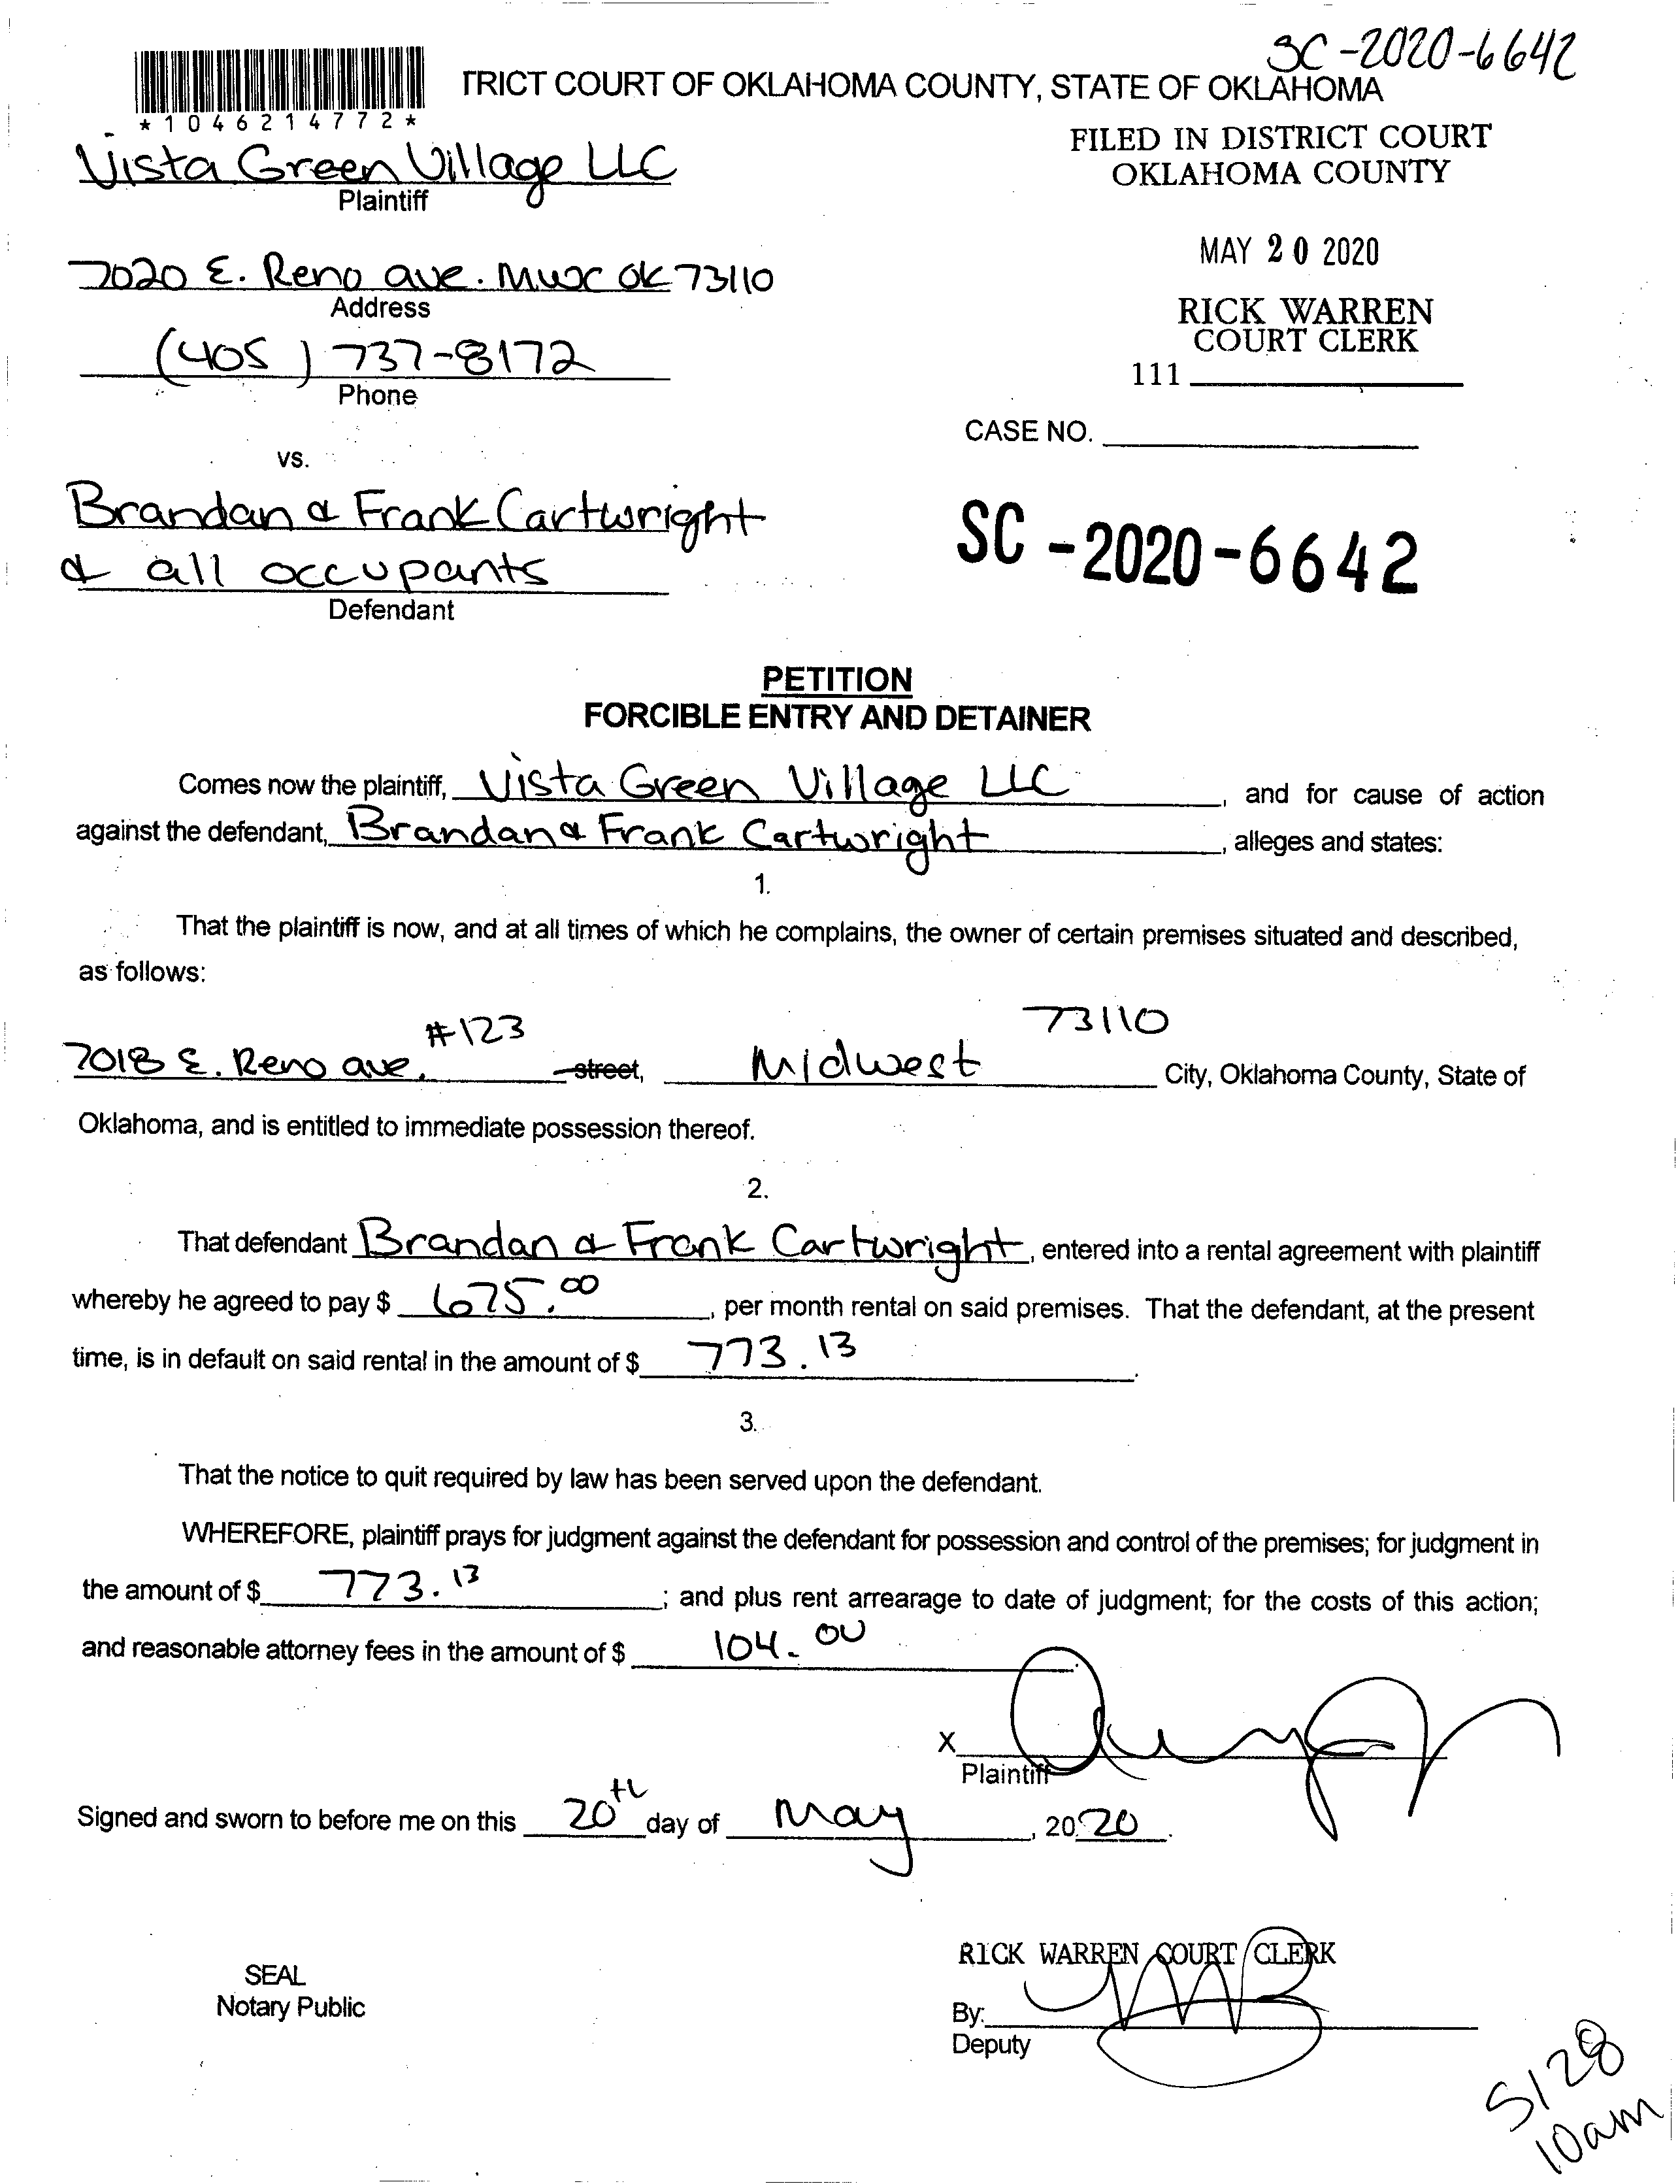 SC-2020-6642
TRICT COURT OF OKLAHOMA COUNTY, STATE OF OKLAHOMA
*1046214772*
FILED IN DISTRICT COURT
OKLAHOMA COUNTY
Vista Green Village LLC
Plaintiff
MAY 20 2020
7020 E. Reno ave. MWC OK 73110
Address
RICK WARREN
COURT CLERK
(405) 737-8172
Phone
111
CASE NO.
vs.
Brandan & Frank Cartwright
& all occupants
Defendant
SC-2020-6642
PETITION
FORCIBLE ENTRY AND DETAINER
Comes now the plaintiff, Vista Green Village LLC, and for cause of action
against the defendant, Brandan & Frank Cartwright, alleges and states:
1.
That the plaintiff is now, and at all times of which he complains, the owner of certain premises situated and described,
as follows:
#123 73110
7018 E. Reno ave. street, Midwest City, Oklahoma County, State of
Oklahoma, and is entitled to immediate possession thereof.
2.
That defendant Brandan & Frank Cartwright, entered into a rental agreement with plaintiff
whereby he agreed to pay $ 675.00, per month rental on said premises. That the defendant, at the present
time, is in default on said rental in the amount of $ 773.13.
3.
That the notice to quit required by law has been served upon the defendant.
WHEREFORE, plaintiff prays for judgment against the defendant for possession and control of the premises; for judgment in
the amount of $ 773.13; and plus rent arrearage to date of judgment; for the costs of this action;
and reasonable attorney fees in the amount of $ 104.00.
X
Plaintiff
Signed and sworn to before me on this 20th day of May, 2020.
RICK WARREN COURT CLERK
SEAL
Notary Public
By:
Deputy
5/28
10am